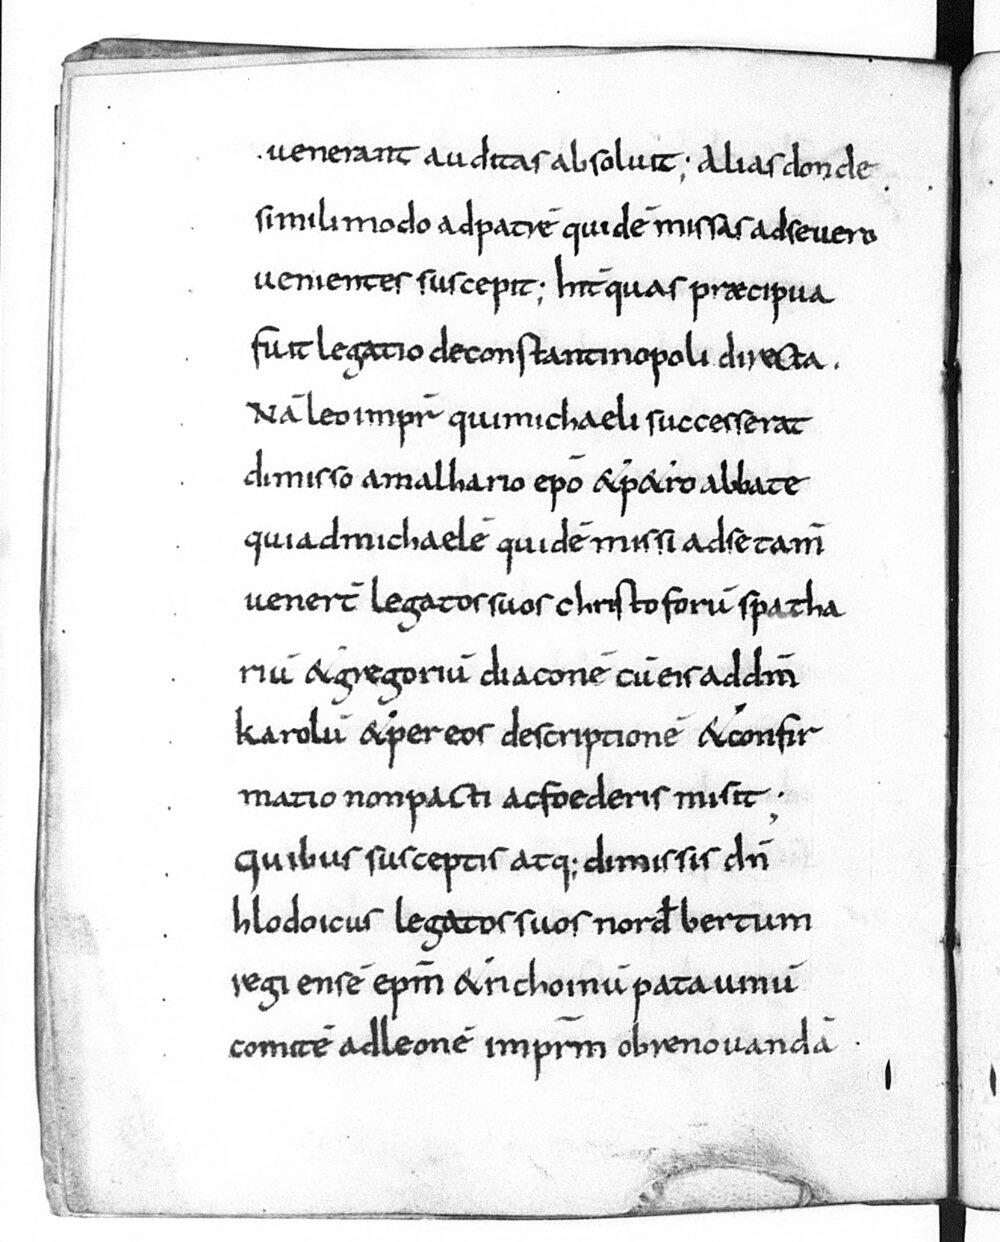 .uenerant auditas absoluit; Alias donde
simili modo ad patrē quidē missas ad se uero
uenientes suscepit; Int̄ quas præcipua
fuit legatio de constantinopoli directa.
Nā leo impr̄ qui michaeli successerat
dimisso amalhario ep̄o & p&ro abbate
qui ad michaelē quidē missi ad se tam̄
uenert̄ legatos suos christoforū spatha
riū & gregoriū diaconē cū eis ad dm̄
karolū & per eos descriptionē & confir
matio non pacti ac foederis misit;
quibus susceptis atq; dimissis dn̄
hlodoicus legatos suos nordbertum
regiensē epm̄ & richoinū patauinū
comitē ad leonē imprm̄ ob renouandā